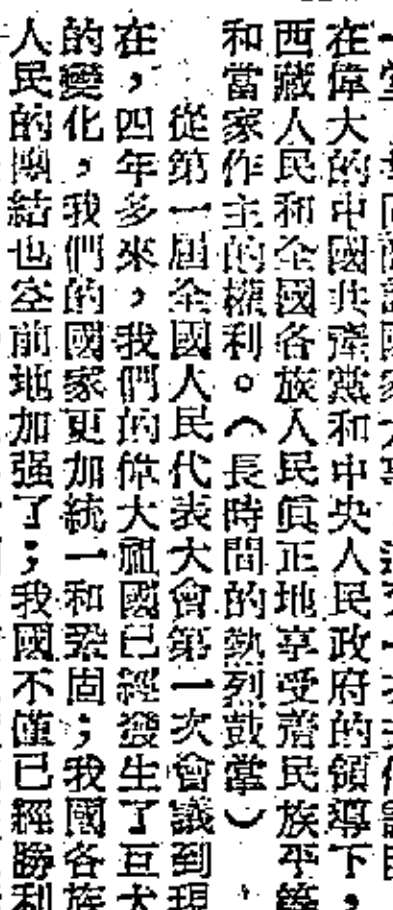 在偉大的中國共產黨和中央人民政府的領導下，
西藏人民和全國各族人民眞正地享受着民族平等
和當家作主的權利。（長時間的熱烈鼓掌）
從第一屆全國人民代表大會第一次會議到現
在，四年多來，我們的偉大祖國已經發生了巨大
的變化，我們的國家更加統一和鞏固；我國各族
人民的團結也空前地加强了；我國不僅已經勝利